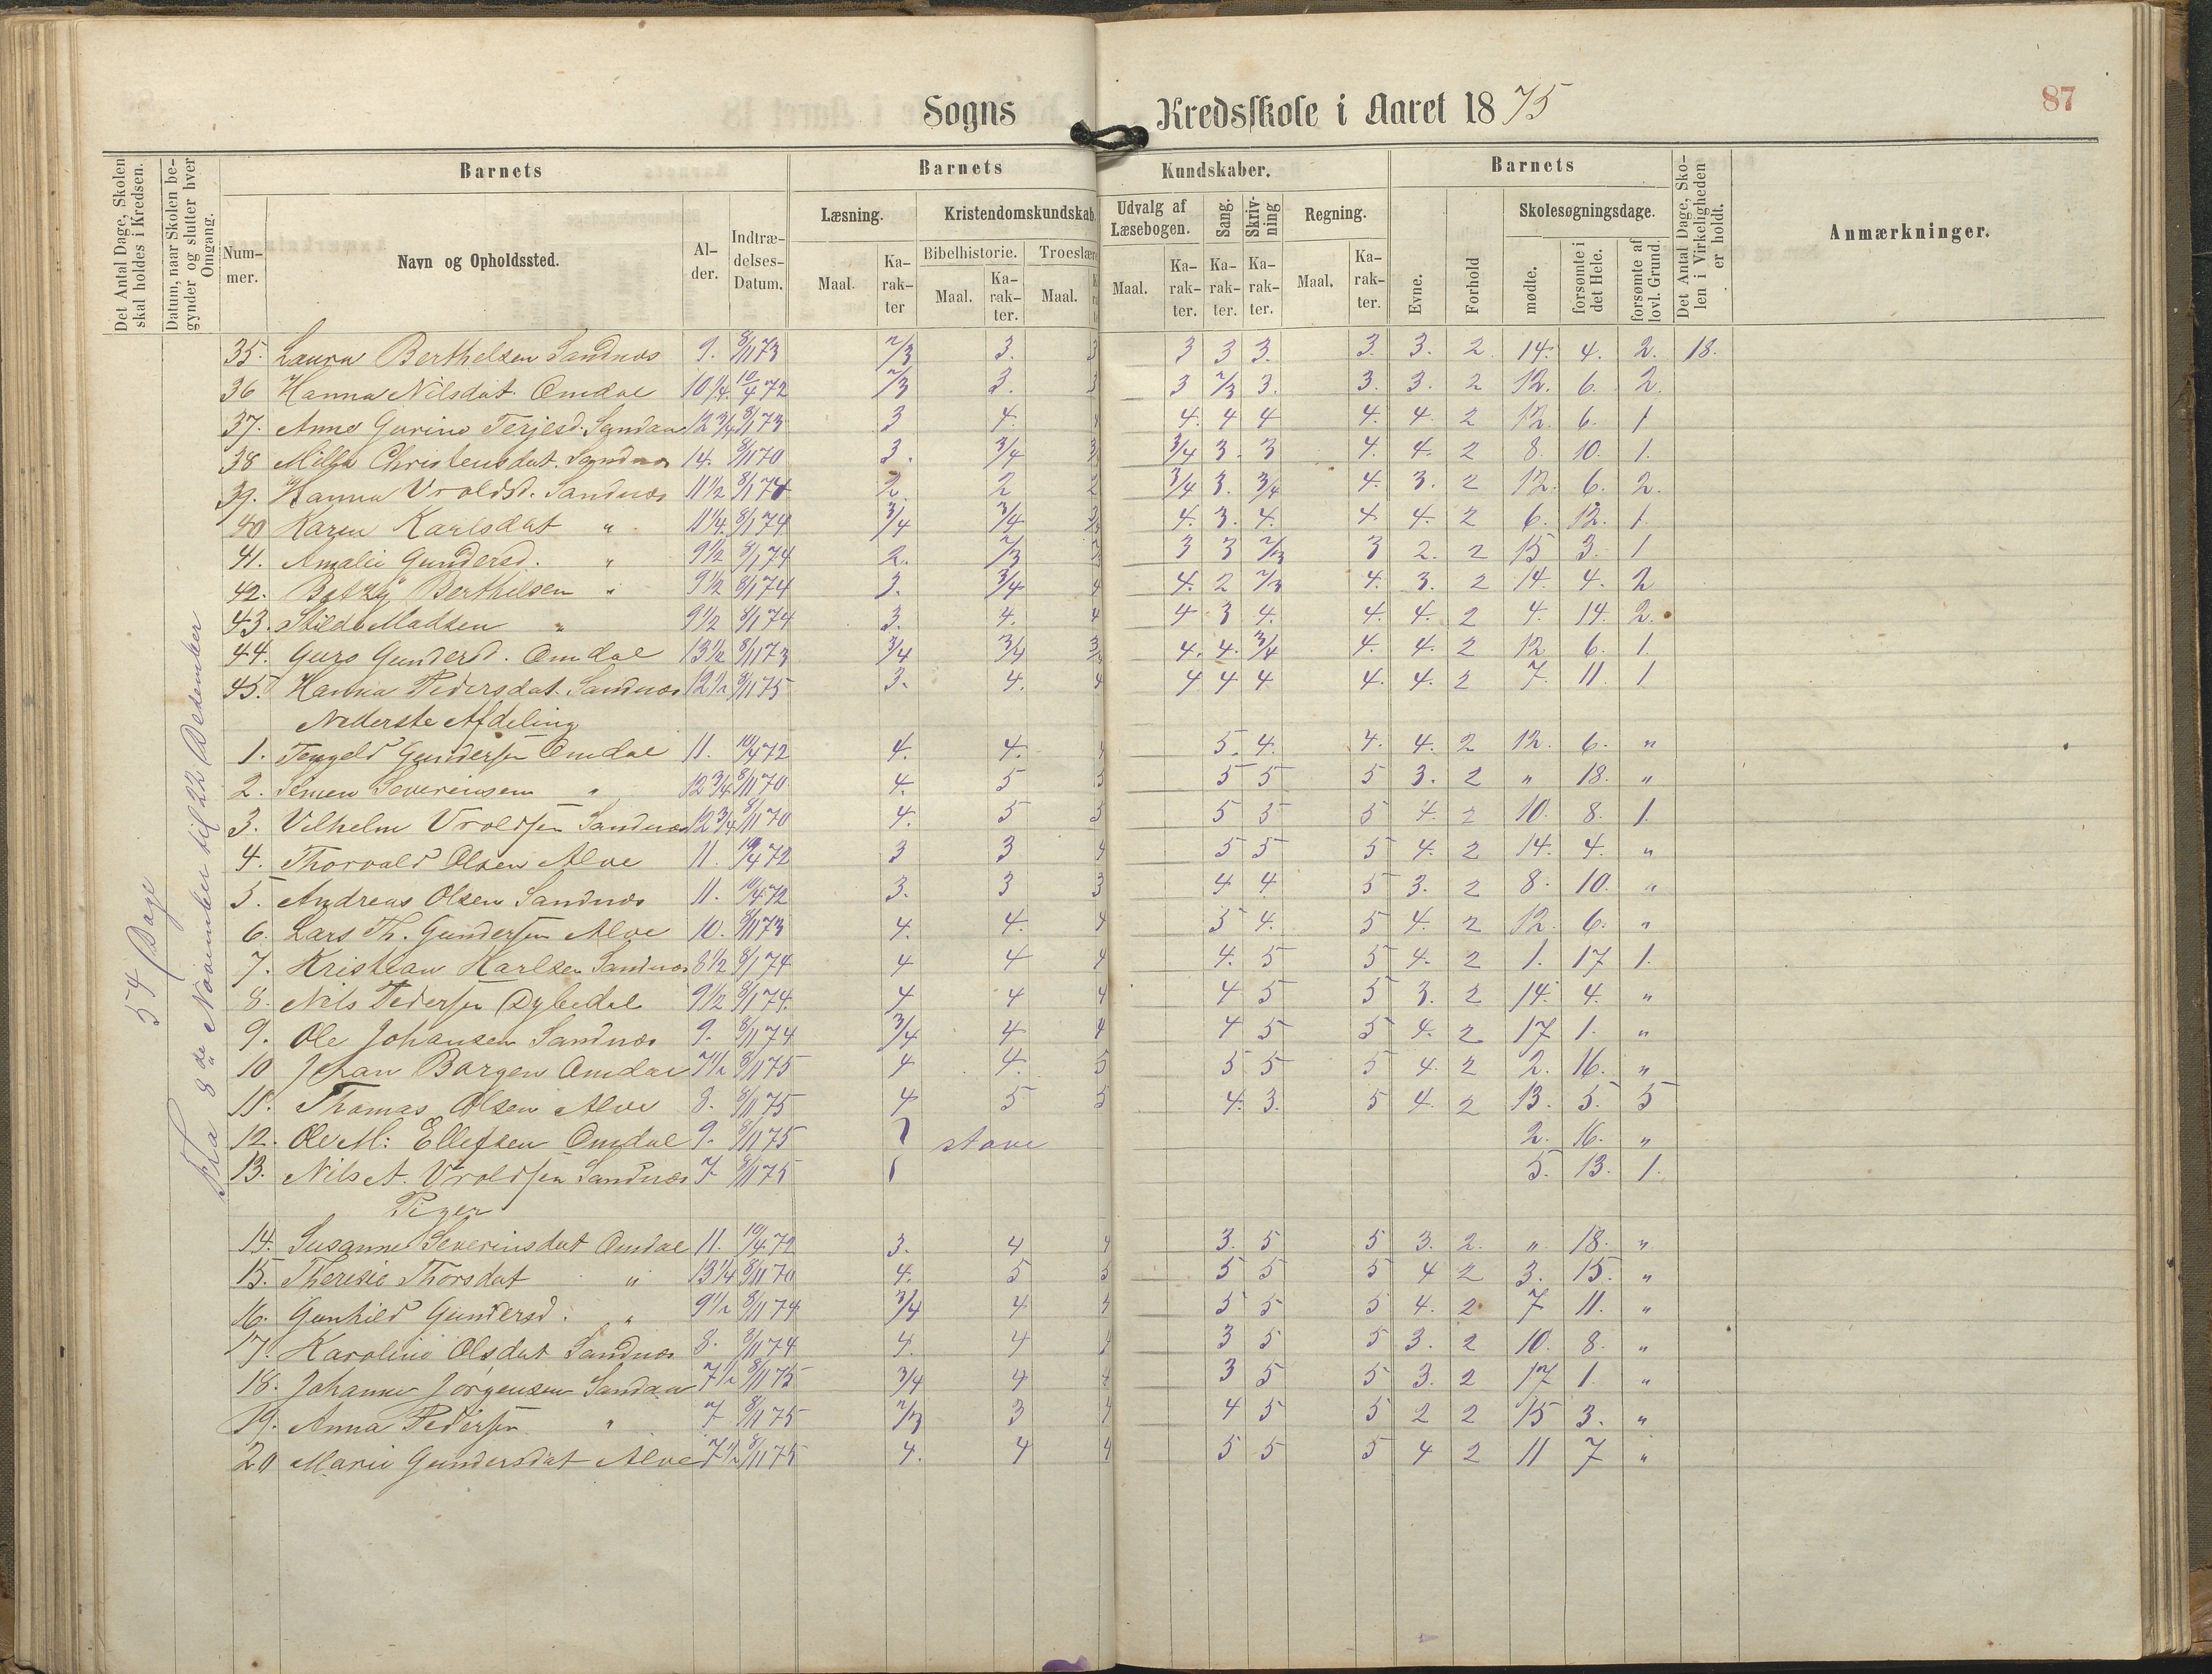 Sogns Kredsskole i Aaret 1875 87
Det Antal Dage, Skolen skal holdes i Kredsen.
Datum, naar Skolen begynder og slutter hver Omgang.
Barnets Barnets Kundskaber. Barnets
Det Antal Dage, Skolen i Virkeligheden er holdt.
Anmærkninger.
Nummer. Navn og Opholdssted. Alder. Indtrædelses-Datum.
Læsning. Kristendomskundskab. Udvalg af Læsebogen. Sang. Skrivning Regning. Evne. Forhold Skolesøgningsdage.
Bibelhistorie. Troeslære
Maal. Karakter Maal. Karakter. Maal. Maal. Karakter. Karakter. Karakter. Maal. Karakter. mødte. forsømte i det Hele. forsømte af lovl. Grund.
54 Dage
Fra 8de November til 22 Desember
35. Laura Berthelsen Sandnæs 9. 8/11 73 2/3 3. 3 3 3 3. 3. 3. 2. 14. 4. 2. 18.
36 Hanna Nilsdat. Omdal 10 1/4. 10/4 72 2/3 3. 3 3 2/3 3. 3. 3. 2 12. 6. 2.
37. Anne Gurine Terjesd. Sandaa 12 3/4 8/1 73 3 4. 4 4. 4 4 4. 4. 2 12. 6. 1
38 Milla Christensdat. Sandnæs 14. 8/11 70 3. 3/4 3/4 3. 3 4. 4. 2 8. 10. 1.
39. Hanna Vroldsd. Sandnæs 11 1/2 8/1 74 2. 2 2 3/4 3. 3/4 4. 3. 2 12. 6. 2.
40 Karen Karlsdat " 11 1/4. 8/1 74 3/4 3/4 4. 3. 4. 4 4. 2 6. 12. 1.
41. Amalie Gundersd. " 9 1/2 8/1 74 2. 2/3 3 3 2/3 3 2. 2 15 3. 1
42. Betzy Berthelsen " 9 1/2 8/1 74 3. 3/4 4 4. 2 2/3 4. 3. 2 14. 4. 2
43. Madsen " 9 1/2 8/1 74 3. 4. 4 4 3 4. 4. 4. 2 4. 14. 2.
44. Guro Gundersd. Omdal 13 1/2 8/11 73 3/4 3/4 3/4 4. 4. 3/4 4. 4. 2 12 6. 1.
45. Hanna Pedersdat. Sandnæs 12 1/2 8/11 75 3. 4. 4 4 4 4 4. 4. 2 7. 11. 1
Nederste Afdeling
1. Gundersen Omdal 11. 10/4 72 4. 4. 4 5. 4. 4. 4. 2 12. 6. "
2. Severinsen " 12 3/4 8/11 70 4. 5 5 5 5 5 3. 2 " 18. "
3. Vilhelm Vroldsen Sandnæs 12 3/4 8/11 70 4. 5 5 5 5 5 4. 2 10. 8. 1.
4. Thorvald Olsen Alve 11. 10/4 72 3 3 4 5 5 5 4. 2 14. 4. "
5. Andreas Olsen Sandnæs 11. 10/4 72 3. 3 3 4 4 5 3. 2 8. 10. "
6. Lars Th. Gundersen Alve 10. 8/11 73 4. 4. 4 5 4. 5 4. 2 12. 6. "
7. Kristian Karlsen Sandnæs 8 1/2 8/1 74 4 4 4 4. 5 5 4. 2 1. 17 1.
8. Nils Pedersen Dybedal 9 1/2 8/1 74. 4 4 4 4 5 5 3. 2 14. 4. "
9. Ole Johansen Sandnæs 9. 8/11 74 3/4 4 4 4 5 5 4. 2 17 1. "
10 Johan Borgen Omdal 7 1/2 8/11 75 4 4. 5 5 5 5 4. 2 2. 16. "
11. Thomas Olsen Alve 8. 8/11 75 4 5 5 4. 3. 5 4. 2 13. 5. 5
12. Ole M: Ellefsen Omdal 9. 8/11 75 } stave 2. 16. "
13. Nils A. Vroldsen Sandnæs 7 8/11 75 5. 13. 1.
Piger
14. Susanne Severinsdat Omdal 11. 10/4 72 3. 4 4 3. 5 5 3. 2. " 18. "
15. Theresie Thorsdat " 13 1/4 8/11 70 4. 5 5 5 5 5 4 2 3. 15. "
16. Gunhild Gundersd. " 9 1/2 8/11 74 3/4 4 5 5 5 4. 2. 7 11. "
17. Karoline Olsdat Sandnæs 8. 8/11 74 4. 4 4 3 5 5 3. 2 10. 8. "
18. Johanne Jørgensen Sandaa 7 1/2 8/11 75 3/4 4 4 3 5 5 3. 2 17 1. "
19. Anna Pedersen " 7 8/11 75 2/3 3 4 4 5 5 2 2 15 3. "
20 Marie Gundersdat Alve 7 1/2 8/11 75 4. 4 4 5 5 5 4 2 11 7 "